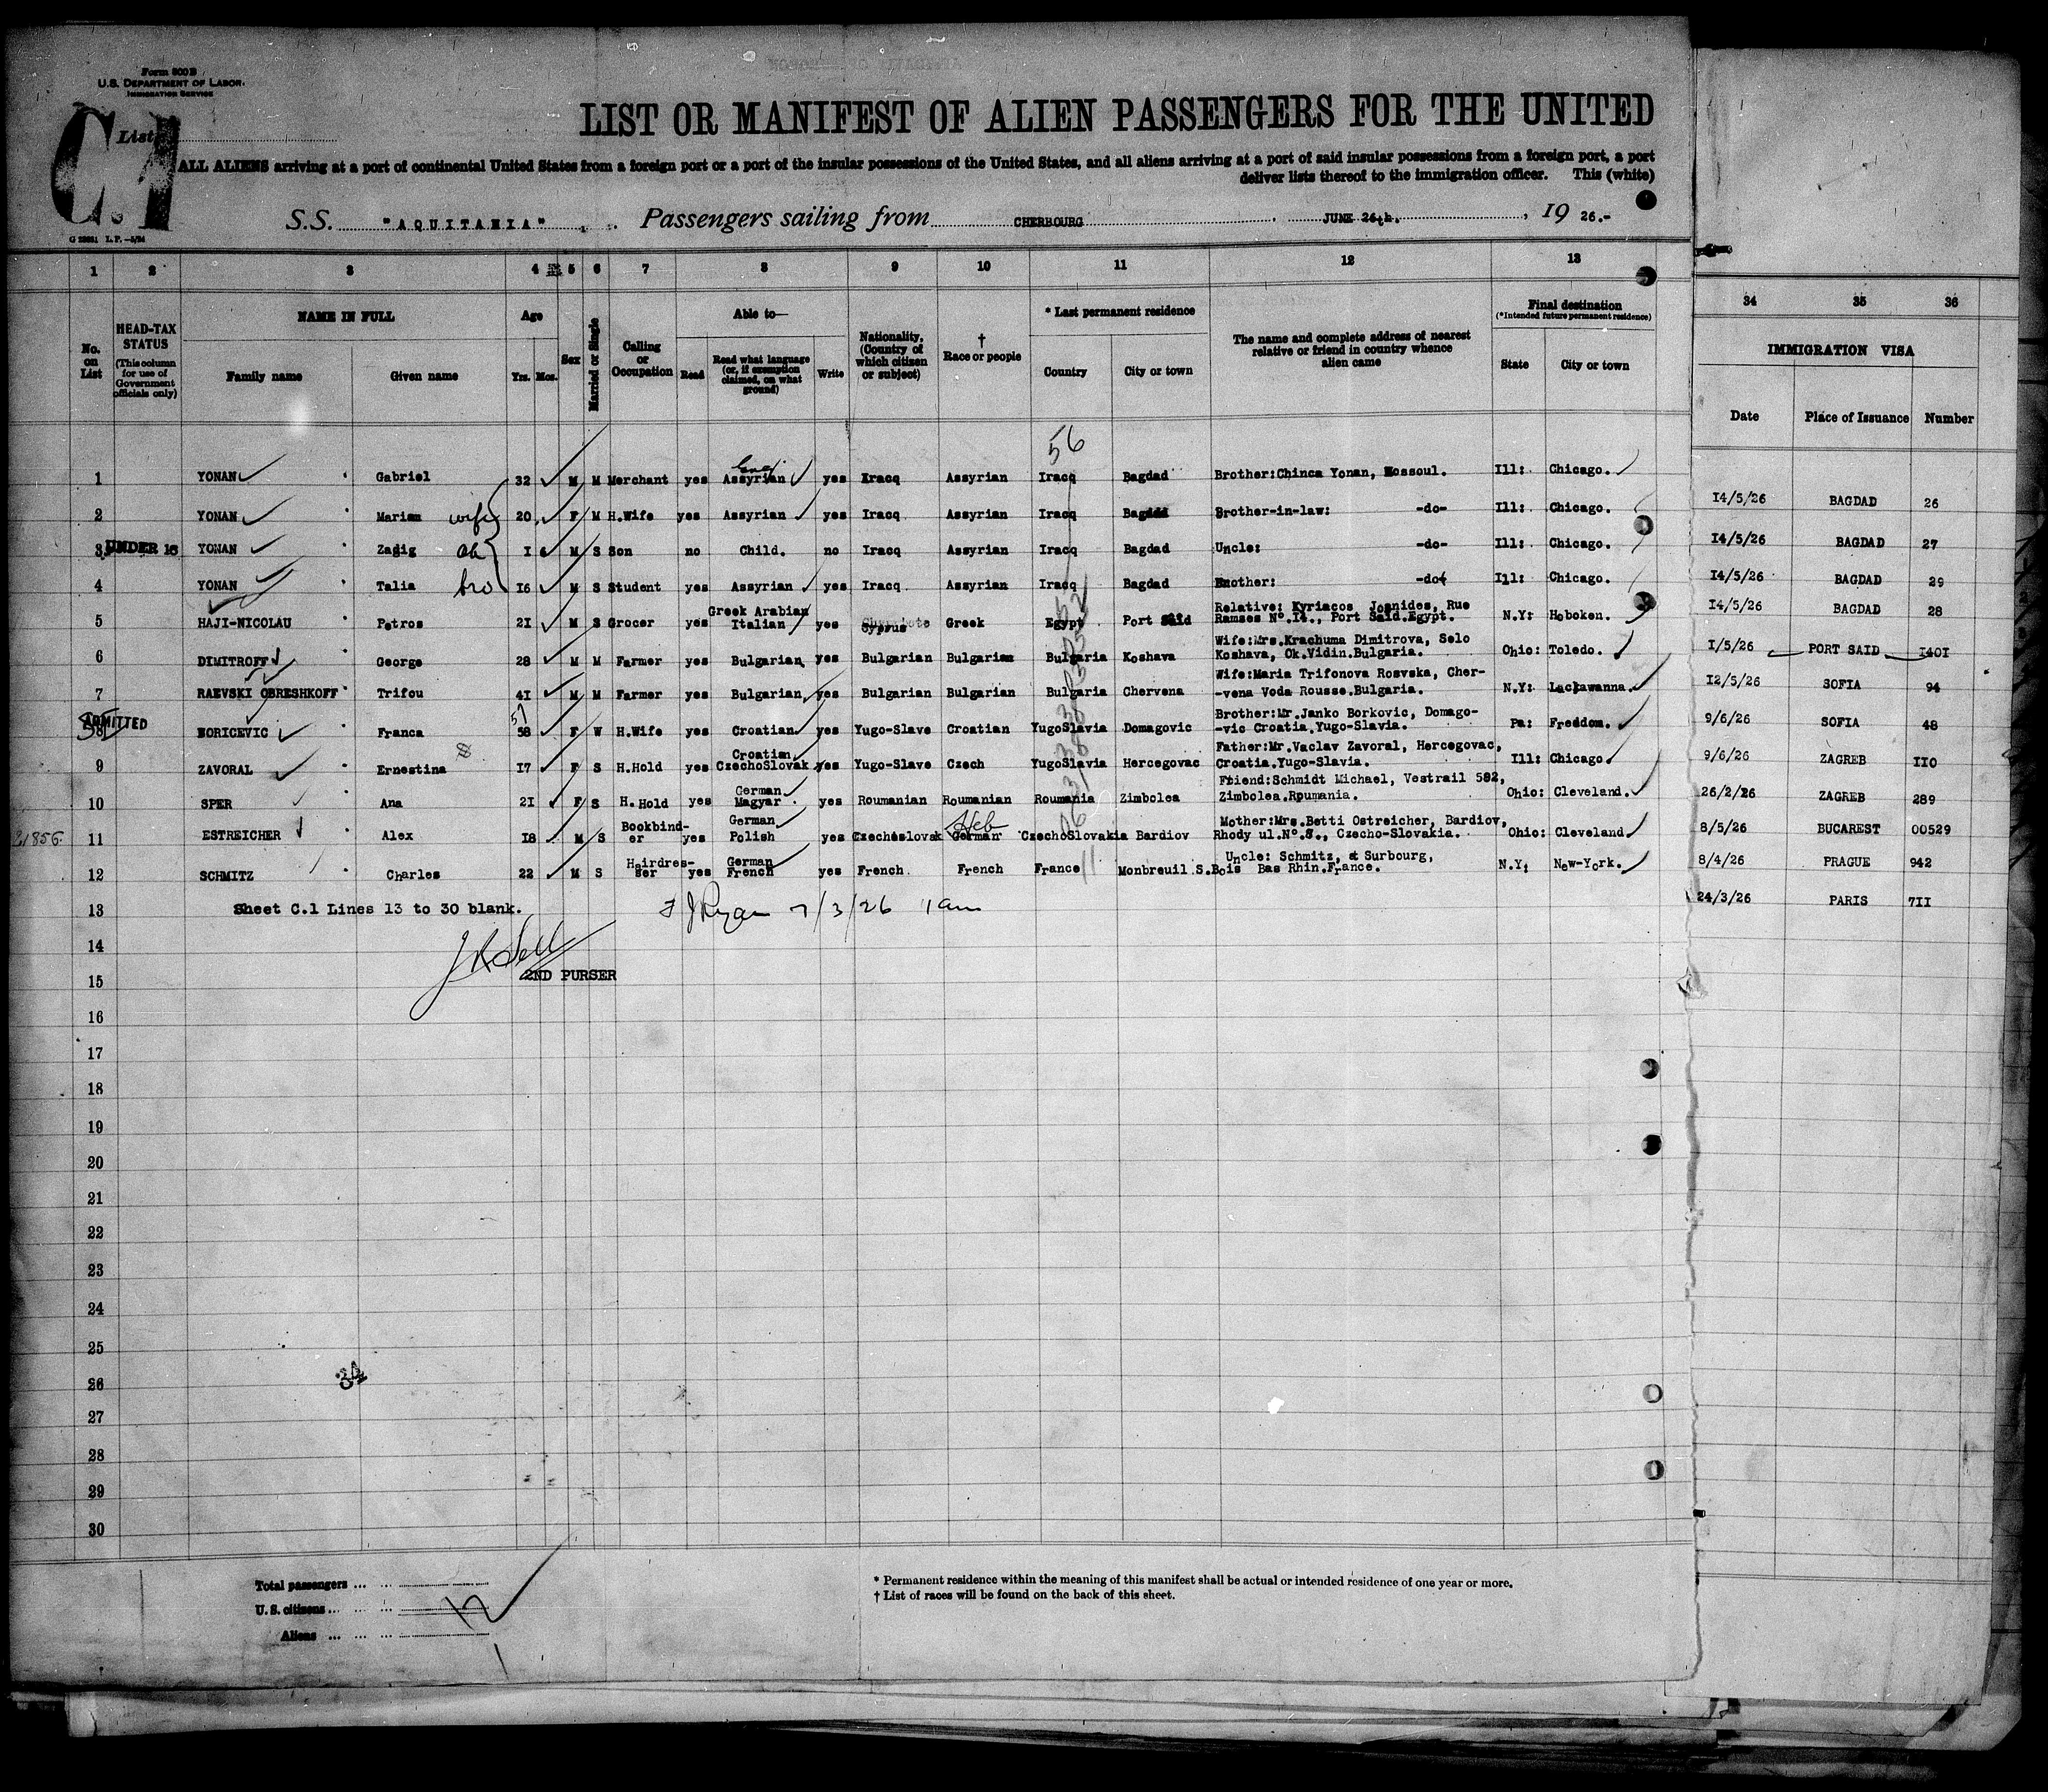 Form 500 B
U.S. DEPARTMENT OF LABOR
IMMIGRATION SERVICE
C.1
List
LIST OR MANIFEST OF ALIEN PASSENGERS FOR THE UNITED
ALL ALIENS arriving at a port of continental United States from a foreign port or a port of the insular possessions of the United States, and all aliens arriving at a port of said insular possessions from a foreign port, a port
deliver lists thereof to the immigration officer. This (white)
S.S. "AQUITANIA" Passengers sailing from CHERBOURG, JUNE 26th., 19 26.-
1 2 3 4 5 6 7 8 9 10 11 12 13
34 35 36
No. on List
HEAD-TAX STATUS
(This column for use of Government officials only)
NAME IN FULL
Family name Given name
Age
Yrs. Mos.
Sex
Married or Single
Calling or Occupation
Able to—
Read Read what language (or, if exemption claimed, on what ground) Write
Nationality, (Country of which citizen or subject)
† Race or people
* Last permanent residence
Country City or town
The name and complete address of nearest relative or friend in country whence alien came
Final destination
(*Intended future permanent residence)
State City or town
IMMIGRATION VISA
Date Place of Issuance Number
56
1 YONAN Gabriel 32 M M Merchant yes Assyrian yes Iracq Assyrian Iracq Bagdad Brother:Chinca Yonan, Mossoul. Ill: Chicago.
2 YONAN Mariam wife 20 F M H.Wife yes Assyrian yes Iracq Assyrian Iracq Bagdad Brother-in-law: -do- Ill: Chicago.
14/5/26 BAGDAD 26
3 UNDER 16 YONAN Zadig ch 1 6 M S Son no Child. no Iracq Assyrian Iracq Bagdad Uncle: -do- Ill: Chicago.
14/5/26 BAGDAD 27
4 YONAN Talia bro 16 M S Student yes Assyrian yes Iracq Assyrian Iracq Bagdad Brother: -do- Ill: Chicago.
14/5/26 BAGDAD 29
5 HAJI-NICOLAU Petros 21 M S Grocer yes Greek Arabian Italian yes Cyprus Greek Egypt Port Said Relative: Kyriacos Joanides, Rue Ramses No.14., Port Said.Egypt. N.Y: Hoboken.
14/5/26 BAGDAD 28
6 DIMITROFF George 28 M M Farmer yes Bulgarian yes Bulgarian Bulgarian Bulgaria Koshava Wife:Mrs.Krachuma Dimitrova, Selo Koshava, Ok.Vidin.Bulgaria. Ohio: Toledo.
1/5/26 PORT SAID 1401
7 RAEVSKI OBRESHKOFF Trifou 41 M M Farmer yes Bulgarian yes Bulgarian Bulgarian Bulgaria Chervena Wife:Maria Trifonova Rosvska, Cher- -vena Voda Rousse.Bulgaria. N.Y: Lackawanna.
12/5/26 SOFIA 94
ADMITTED
8 BORICEVIC Franca 57 58 F W H.Wife yes Croatian yes Yugo-Slave Croatian YugoSlavia Domagovic Brother:Mr.Janko Borkovic, Domago- -vic Croatia.Yugo-Slavia. Pa: Freedom.
9/6/26 SOFIA 48
9 ZAVORAL Ernestina 17 F S H.Hold yes Croatian CzechoSlovak yes Yugo-Slave Czech YugoSlavia Hercegovac Father:Mr.Vaclav Zavoral, Hercegovac, Croatia.Yugo-Slavia. Ill: Chicago
9/6/26 ZAGREB 110
10 SPER Ana 21 F S H. Hold yes German Magyar. yes Roumanian Roumanian Roumania Zimbolea Friend:Schmidt Michael, Vestrail 582, Zimbolea.Roumania. Ohio: Cleveland.
26/2/26 ZAGREB 289
21856
11 ESTREICHER Alex 18 M S Bookbind- er yes German Polish yes Czechoslovak Heb German CzechoSlovakia Bardiov Mother:Mrs.Betti Ostreicher, Bardiov, Rhody ul.No.8., Czecho-Slovakia. Ohio: Cleveland.
8/5/26 BUCAREST 00529
12 SCHMITZ Charles 22 M S Hairdres- ser yes German French yes French French France Monbreuil S.Bois Uncle: Schmitz, at Surbourg, Bas Rhin.France. N.Y: New-York.
8/4/26 PRAGUE 942
13 Sheet C.1 Lines 13 to 30 blank. F J Ryan 7/3/26 11am
24/3/26 PARIS 711
14
15 2ND PURSER
16
17
18
19
20
21
22
23
24
25
26
34
27
28
29
30
Total passengers ... ...
U.S. citizens ... ... ...
12
Aliens ... ... ...
* Permanent residence within the meaning of this manifest shall be actual or intended residence of one year or more.
† List of races will be found on the back of this sheet.